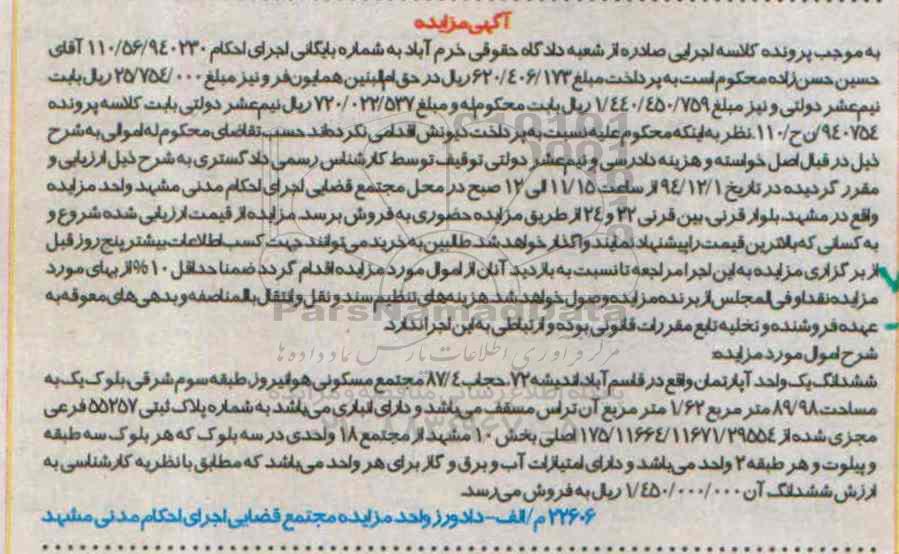 آگهی مزایده
به موجب پرونده کلاسه اجرایی صادره از شعبه دادگاه حقوقی خرم آباد به شماره بایگانی اجرای احکام ۱۱۰/۵۶/۹۴۰۲۳۰ آقای
حسین حسن زاده محکوم است به پرداخت مبلغ ۶۲۰/۴۰۶/۱۷۳ ریال در حق ام البنین همایون فر و نیز مبلغ ۲۵/۷۵۴/۰۰۰ ریال بابت
نیم عشر دولتی و نیز مبلغ ۱/۴۴۰/۴۵۰/۷۵۹ ریال بابت محکوم له و مبلغ ۷۲۰/۰۲۲/۵۳۷ ریال نیم عشر دولتی بابت کلاسه پرونده
۹۴۰۷۵۴/ن ح/۱۱۰. نظر به اینکه محکوم علیه نسبت به پرداخت دیونش اقدامی نکرده اند حسب تقاضای محکوم له اموالی به شرح
ذیل در قبال اصل خواسته و هزینه دادرسی و نیم عشر دولتی توقیف توسط کارشناس رسمی دادگستری به شرح ذیل ارزیابی و
مقرر گردیده در تاریخ ۹۴/۱۲/۱ از ساعت ۱۱/۱۵ الی ۱۲ صبح در محل مجتمع قضایی اجرای احکام مدنی مشهد واحد مزایده
واقع در مشهد، بلوار قرنی، بین قرنی ۲۲ و ۲۴ از طریق مزایده حضوری به فروش برسد. مزایده از قیمت ارزیابی شده شروع و
به کسانی که بالاترین قیمت را پیشنهاد نمایند واگذار خواهد شد. طالبین به خرید می توانند جهت کسب اطلاعات بیشتر پنج روز قبل
از برگزاری مزایده به این اجرا مراجعه تا نسبت به بازدید آنان از اموال مورد مزایده اقدام گردد ضمنا حداقل ۱۰% از بهای مورد
مزایده نقدا و فی المجلس از برنده مزایده وصول خواهد شد. هزینه های تنظیم سند و نقل و انتقال بالمناصفه و بدهی های معوقه به
عهده فروشنده و تخلیه تابع مقررات قانونی بوده و ارتباطی به این اجرا ندارد.
شرح اموال مورد مزایده:
ششدانگ یک واحد آپارتمان واقع در قاسم آباد، اندیشه ۷۲، حجاب ۸۷/۴ مجتمع مسکونی هوانیروز، طبقه سوم شرقی بلوک یک به
مساحت ۸۹/۹۸ متر مربع ۱/۶۲ متر مربع آن تراس مسقف می باشد و دارای انباری می باشد به شماره پلاک ثبتی ۵۵۲۵۷ فرعی
مجزی شده از ۱۷۵/۱۱۶۶۴/۱۱۶۷۱/۲۹۵۵۴ اصلی بخش ۱۰ مشهد از مجتمع ۱۸ واحدی در سه بلوک که هر بلوک سه طبقه
و پیلوت و هر طبقه ۲ واحد می باشد و دارای امتیازات آب و برق و گاز برای هر واحد می باشد که مطابق با نظریه کارشناسی به
ارزش ششدانگ آن ۱/۴۵۰/۰۰۰/۰۰۰ ریال به فروش می رسد.
۲۲۶۰۶ م/الف - دادورز واحد مزایده مجتمع قضایی اجرای احکام مدنی مشهد
ParsNamadData
مرکز فرآوری اطلاعات پارس نماد داده ها